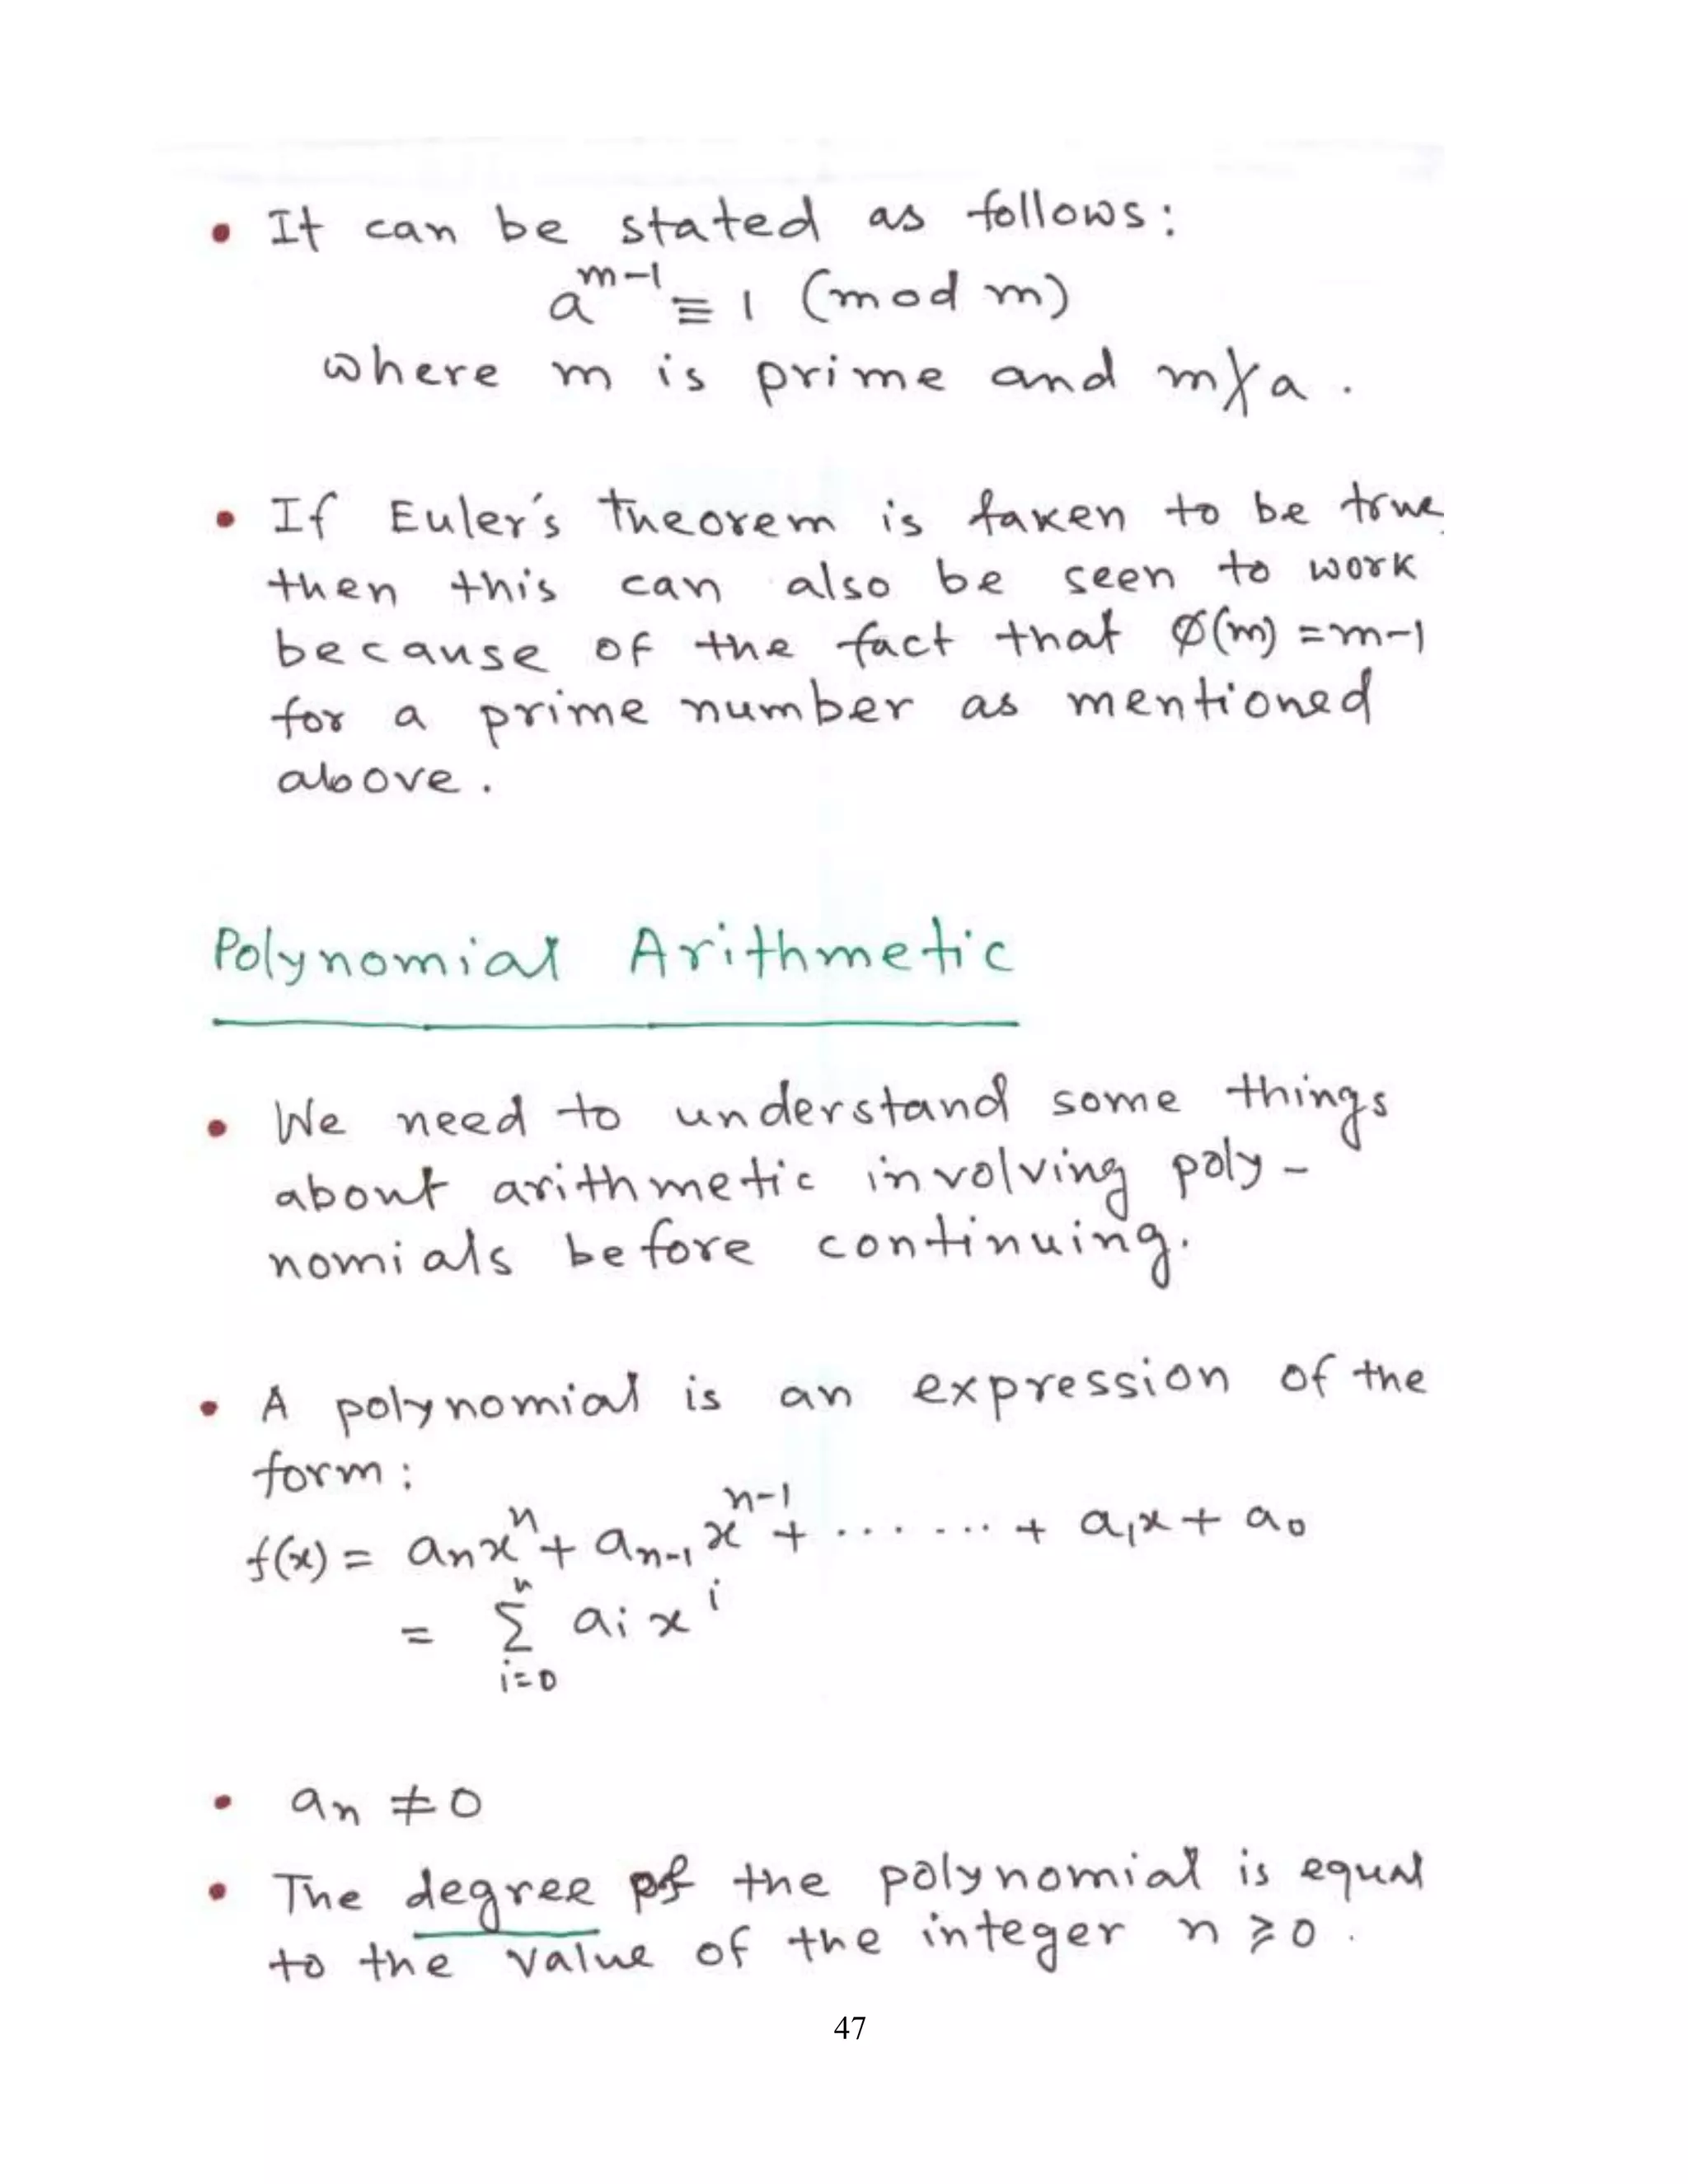 • It can be stated as follows:
a^{m-1} ≡ 1 (mod m)
where m is prime and m∤a.
• If Euler's theorem is taken to be true
then this can also be seen to work
because of the fact that Ø(m) = m-1
for a prime number as mentioned
above.
Polynomial Arithmetic
• We need to understand some things
about arithmetic involving poly-
nomials before continuing.
• A polynomial is an expression of the
form:
f(x) = a_n x^n + a_{n-1} x^{n-1} + ........ + a_1 x + a_0
= Σ_{i=0}^{n} a_i x^i
• a_n ≠ 0
• The degree of the polynomial is equal
to the value of the integer n ≥ 0.
47